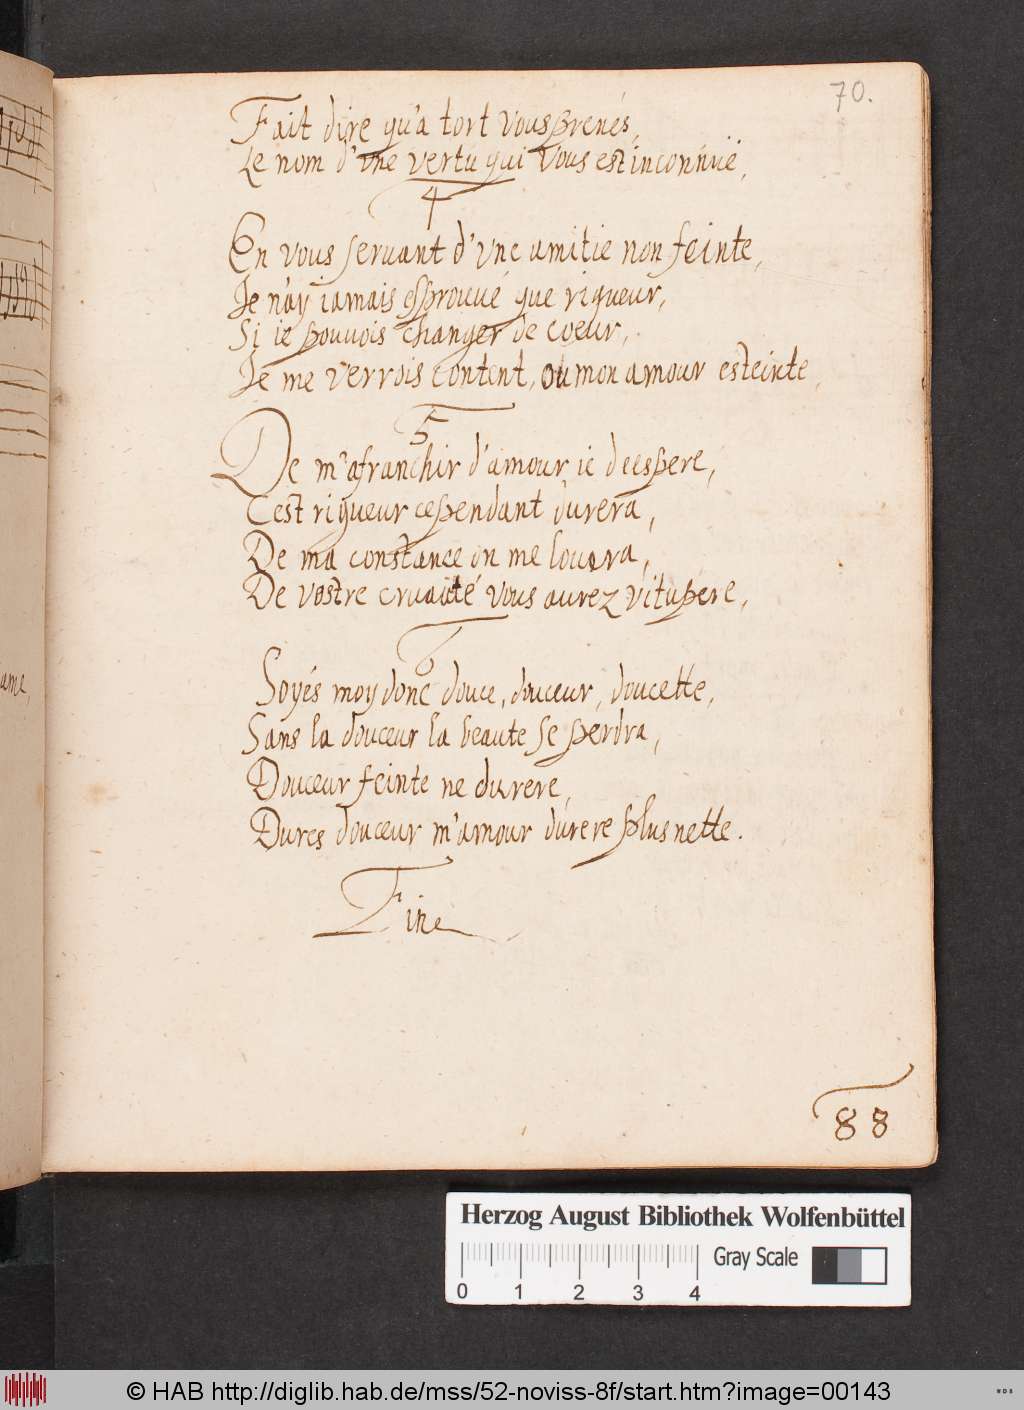 70.
Fait dire qu'a tort vous prenés,
Le nom d'une vertu qui vous est inconnue,
4
En vous servant d'une amitie non feinte,
Je n'ay iamais esprouué que rigueur,
Si ie pouuois changer de coeur,
Je me verrois content, ou mon amour esteinte,
5
De m'afranchir d'amour ie deespere,
Cest rigueur cependant durera,
De ma constance on me louera,
De vostre cruauté vous aurez vitupere,
6
Soyés moy donc douce, douceur, doucette,
Sans la douceur la beaute se perdra,
Douceur feinte ne durere,
Dures douceur m'amour durere plus nette.
Fine
ame,
88
Herzog August Bibliothek Wolfenbüttel
Gray Scale
0 1 2 3 4
© HAB http://diglib.hab.de/mss/52-noviss-8f/start.htm?image=00143